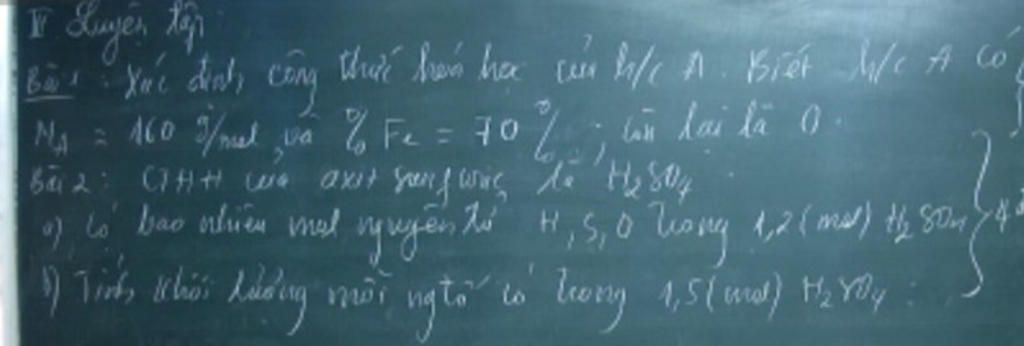 IV Luyện tập
Bài 1: Xác định công thức hóa học của h/c A. Biết h/c A có
MA = 160 g/mol và % Fe = 70%; còn lại là O.
Bài 2: CTHH của axit sunfuric là H2SO4.
a) Có bao nhiêu mol nguyên tử H, S, O trong 1,2 (mol) H2SO4
b) Tính khối lượng mỗi ngtố có trong 1,5 (mol) H2SO4.